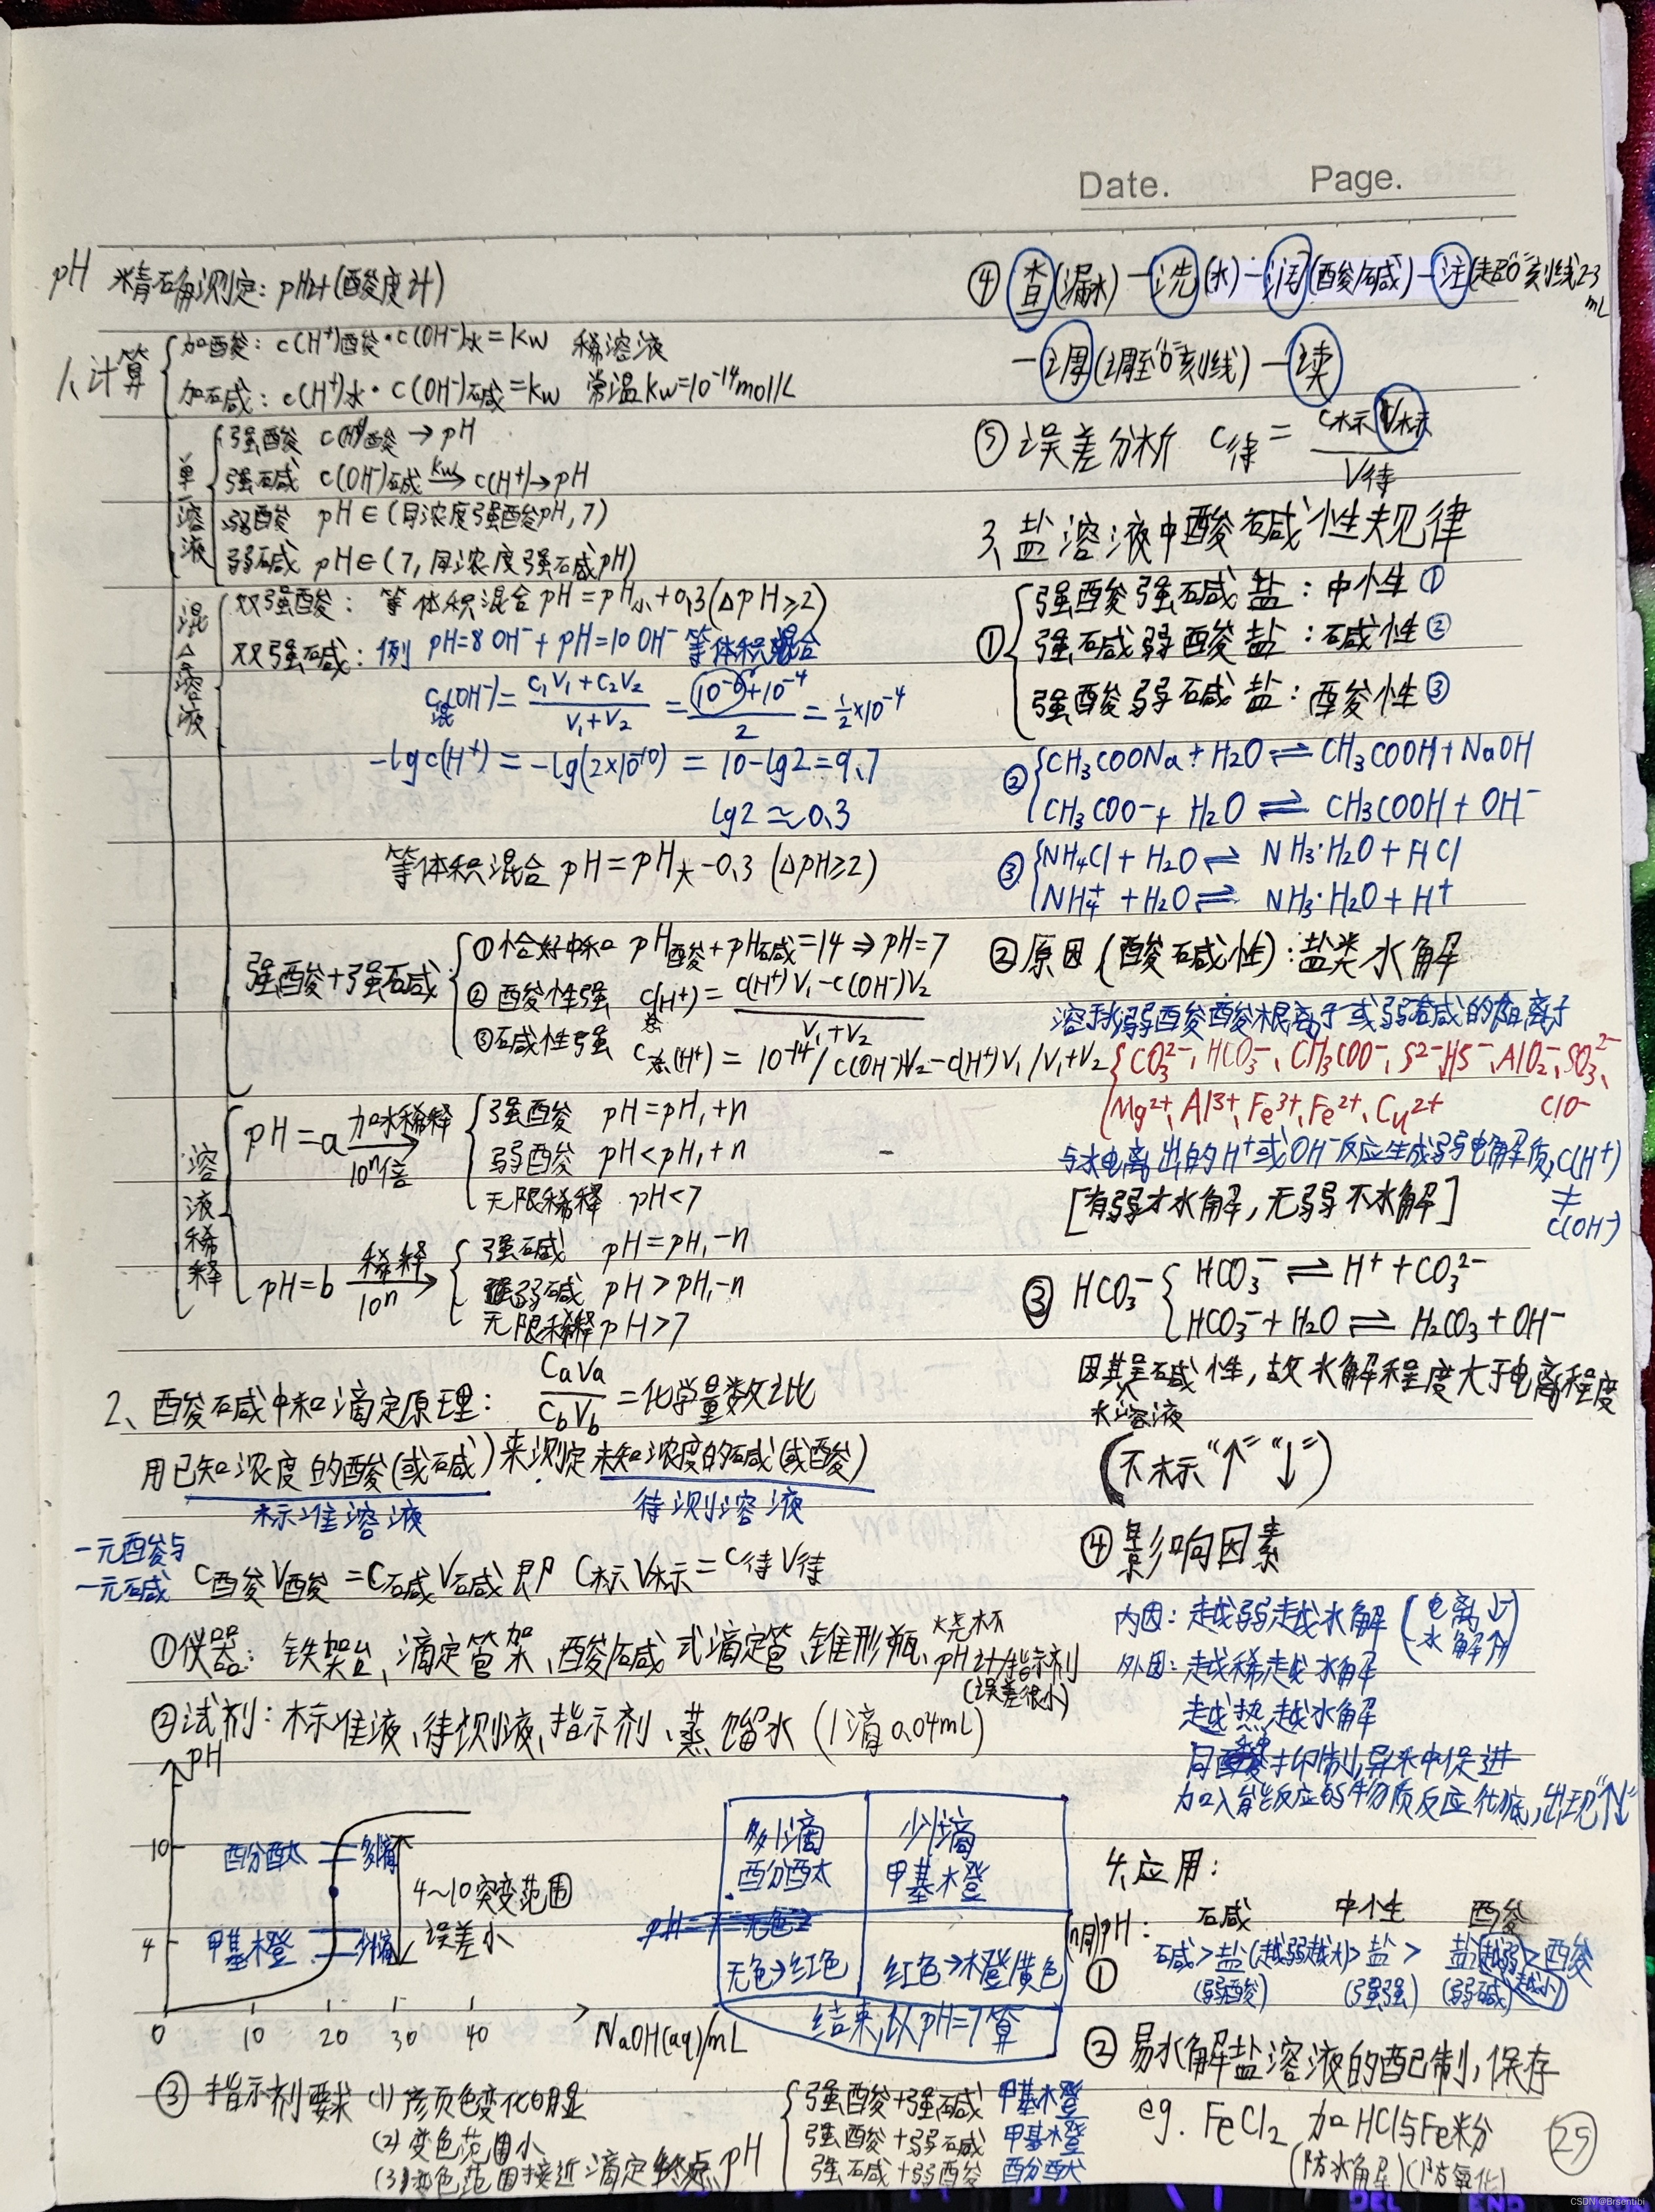 Date. Page.
pH 精确测定: pH计(酸度计)
1、计算
加酸: c(H⁺)酸·c(OH⁻)水=Kw 稀溶液
加碱: c(H⁺)水·c(OH⁻)碱=Kw 常温Kw=10⁻¹⁴mol/L
单一溶液
强酸 c(H⁺)酸→pH
强碱 c(OH⁻)碱 —Kw→ c(H⁺)→pH
弱酸 pH∈(同浓度强酸pH, 7)
弱碱 pH∈(7, 同浓度强碱pH)
混合溶液
双强酸: 等体积混合 pH=pH小+0.3(△pH≥2)
双强碱: 例 pH=8 OH⁻+pH=10 OH⁻ 等体积混合
c混(OH⁻)= (c₁V₁+c₂V₂)/(V₁+V₂) = (10⁻⁶+10⁻⁴)/2 = ½×10⁻⁴
-lgc(H⁺)=-lg(2×10⁻¹⁰)=10-lg2=9.7
lg2≈0.3
等体积混合 pH=pH大-0.3 (△pH≥2)
强酸+强碱
①恰好中和 pH酸+pH碱=14⇒pH=7
②酸性强 c总(H⁺)= (c(H⁺)V₁-c(OH⁻)V₂)/(V₁+V₂)
③碱性强 c总(H⁺)=10⁻¹⁴/c(OH⁻)V₂-c(H⁺)V₁/V₁+V₂
溶液稀释
pH=a 加水稀释→10ⁿ倍
强酸 pH=pH₁+n
弱酸 pH<pH₁+n
无限稀释 pH<7
pH=b 稀释→10ⁿ
强碱 pH=pH₁-n
弱碱 pH>pH₁-n
无限稀释 pH>7
2、酸碱中和滴定原理: CaVa/CbVb=化学量数之比
用已知浓度的酸(或碱)来测定未知浓度的碱(或酸)
标准溶液 待测溶液
一元酸与
一元碱
C酸V酸=C碱V碱 即 C标V标=C待V待
①仪器: 铁架台、滴定管架、酸/碱式滴定管、锥形瓶、烧杯
pH计/指示剂
(误差很小)
②试剂: 标准液、待测液、指示剂、蒸馏水 (1滴0.04mL)
pH
10 酚酞 多1滴
4~10突变范围
误差小
4 甲基橙 少1滴
0 10 20 30 40 NaOH(aq)/mL
多1滴 少1滴
酚酞 甲基橙
无色→红色 红色→橙黄色
结束,以pH=7算
③指示剂要求 (1)颜色变化明显
(2)变色范围小
(3)变色范围接近滴定终点pH
强酸+强碱 甲基橙
强酸+弱碱 甲基橙
强碱+弱酸 酚酞
④查(漏水)—洗(水)—润(酸/碱)—注(走起"0"刻线2-3mL
—调(调至"0"刻线)—读
⑤误差分析 C待= C标V标/V待
3、盐溶液中酸碱性规律
①
强酸强碱盐: 中性①
强碱弱酸盐: 碱性②
强酸弱碱盐: 酸性③
②
CH₃COONa+H₂O⇌CH₃COOH+NaOH
CH₃COO⁻+H₂O⇌CH₃COOH+OH⁻
③
NH₄Cl+H₂O⇌NH₃·H₂O+HCl
NH₄⁺+H₂O⇌NH₃·H₂O+H⁺
②原因(酸碱性): 盐类水解
弱酸酸根离子或弱碱的阳离子
CO₃²⁻、HCO₃⁻、CH₃COO⁻、S²⁻、HS⁻、AlO₂⁻、SO₃²⁻、
Mg²⁺、Al³⁺、Fe³⁺、Fe²⁺、Cu²⁺ ClO⁻
与水电离出的H⁺或OH⁻反应生成弱电解质,c(H⁺)
≠
c(OH⁻)
[有弱才水解,无弱不水解]
③ HCO₃⁻
HCO₃⁻⇌H⁺+CO₃²⁻
HCO₃⁻+H₂O⇌H₂CO₃+OH⁻
因其呈碱性,故水解程度大于电离程度
水溶液
(不标"↑""↓")
④影响因素
内因: 越弱越水解 (电离↓ 水解↑)
外因: 越稀越水解
越热越水解
同抑制,异中促进
加入能反应的物质反应彻底,出现"↑↓"
4、应用:
①(同)pH: 碱 中性 酸
碱>盐(越弱越水)>盐>盐(越弱越小)>酸
(弱酸) (强强) (弱碱)
②易水解盐溶液的配制,保存
eg. FeCl₂ 加HCl与Fe粉
(防水解)(防氧化)
25
CSDN @Brsentibi